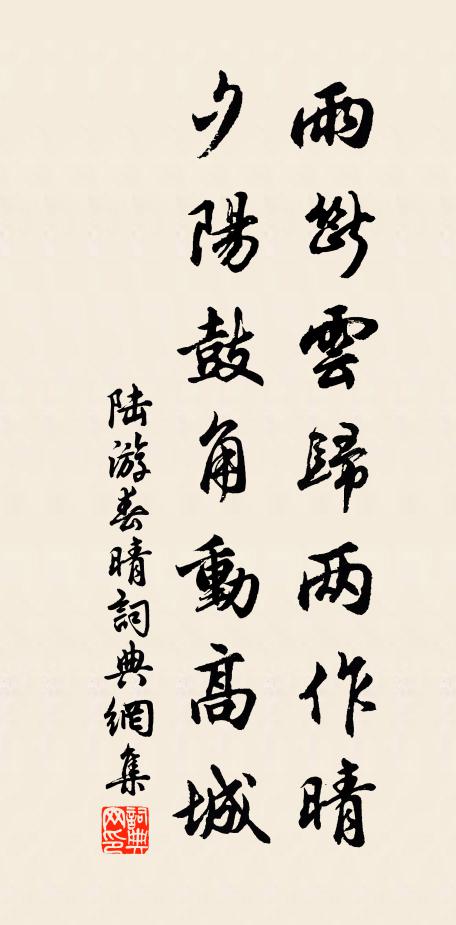 雨斷雲歸兩作晴
夕陽鼓角動高城
陆游春晴詞典網集
詞典网印